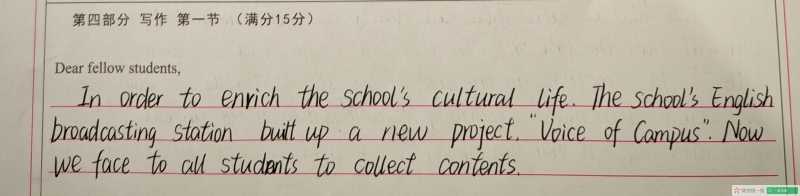 第四部分 写作 第一节 （满分15分）
Dear fellow students,
In order to enrich the school's cultural life. The school's English
broadcasting station built up a new project. "Voice of Campus". Now
we face to all students to collect contents.